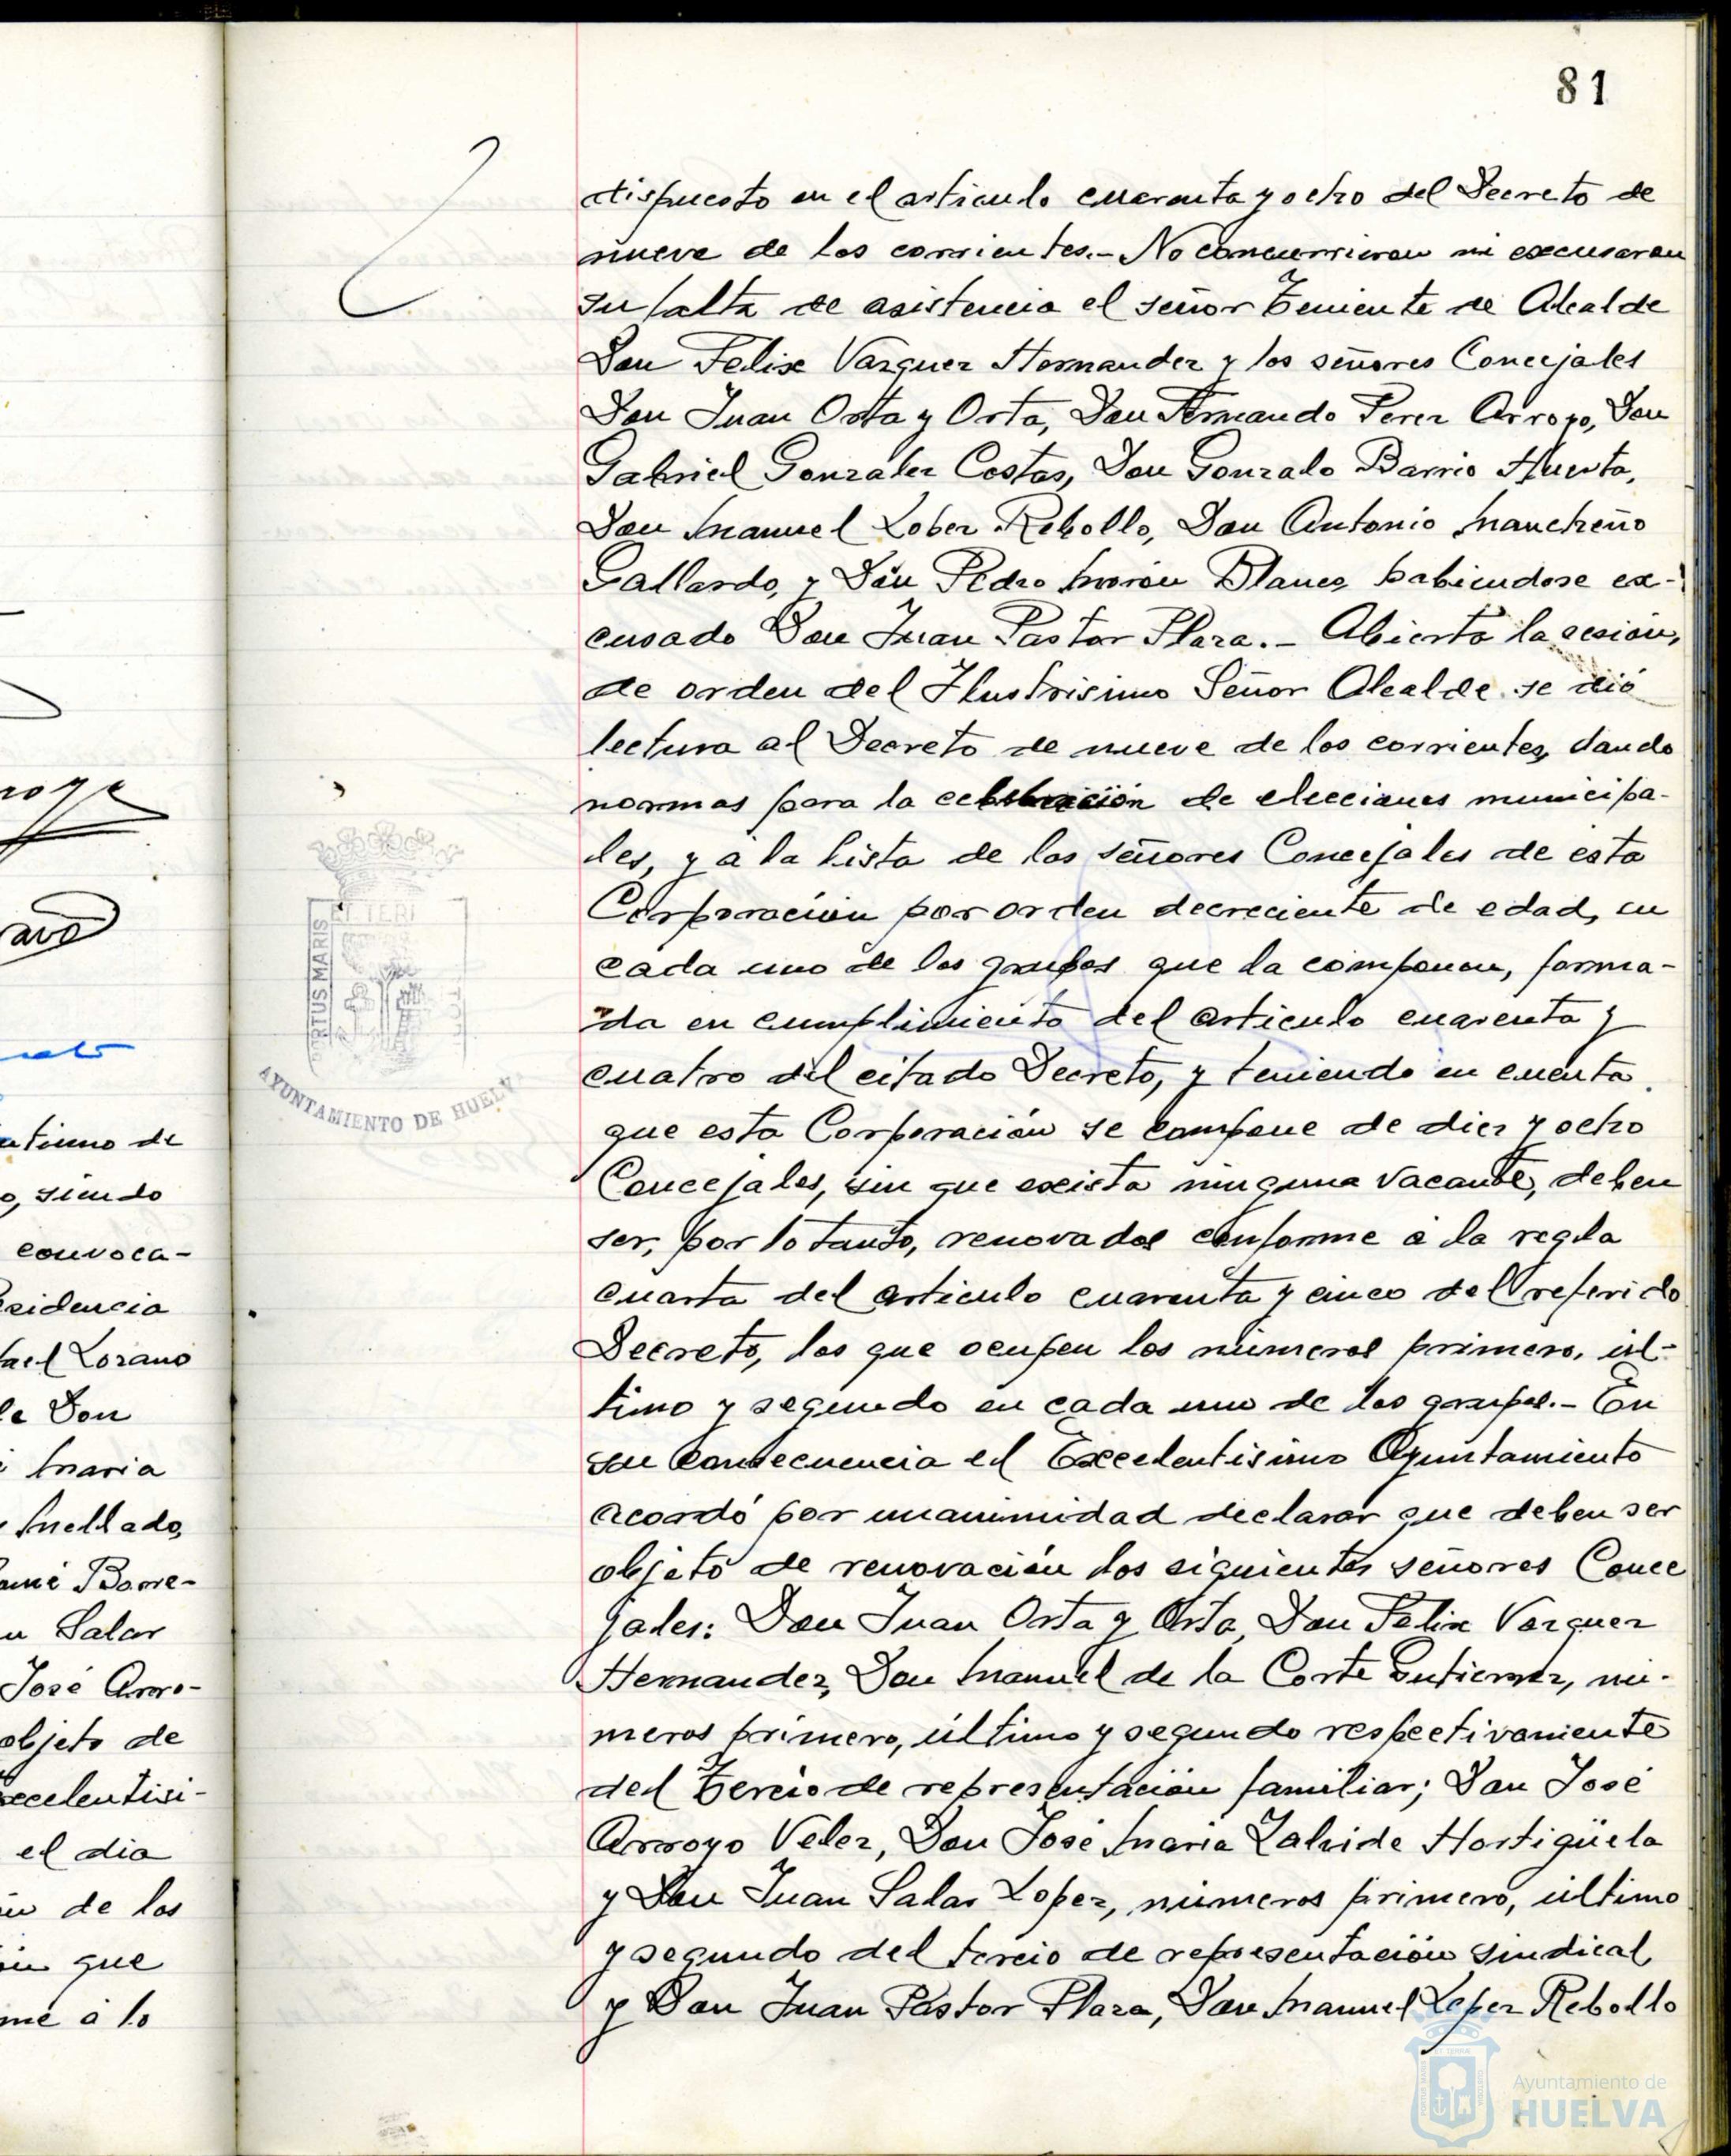 81
dispuesto en el articulo cuarenta y ocho del Decreto de
nueve de los corrientes.- No concurrieron ni excusaron
su falta de asistencia el señor Teniente de Alcalde
Don Felix Vazquez Hernandez y los señores Concejales
Don Juan Orta y Orta, Don Fernando Perez Arroyo, Don
Gabriel Gonzalez Costas, Don Gonzalo Barrio Huerta,
Don Manuel Lopez Rebollo, Don Antonio Mancheño
Gallardo, y Don Pedro Morón Blanco, habiendose ex-
cusado Don Juan Pastor Plaza.- Abierta la sesión,
de orden del Ilustrisimo Señor Alcalde se dió
lectura al Decreto de nueve de los corrientes, dando
normas para la celebración de elecciones municipa-
les, y a la lista de los señores Concejales de esta
Corporación por orden decreciente de edad, en
cada uno de los grupos que la componen, forma-
da en cumplimiento del articulo cuarenta y
cuatro del citado Decreto, y teniendo en cuenta
que esta Corporación se compone de diez y ocho
Concejales, sin que exista ninguna vacante, deben
ser, por lo tanto, renovados conforme á la regla
cuarta del articulo cuarenta y cinco del referido
Decreto, los que ocupen los números primero, úl-
timo y segundo en cada uno de los grupos.- En
su consecuencia el Excelentisimo Ayuntamiento
acordó por unanimidad declarar que deben ser
objeto de renovación los siguientes señores Conce
jales: Don Juan Orta y Orta, Don Felix Vazquez
Hernandez, Don Manuel de la Corte Gutierrez, nú-
meros primero, último y segundo respectivamente
del Tercio de representación familiar; Don José
Arroyo Velez, Don José Maria Zalvide Hortigüela
y Don Juan Salas Lopez, números primero, último
y segundo del tercio de representación sindical,
y Don Juan Pastor Plaza, Don Manuel Lopez Rebollo
PORTUS MARIS
ET TERR
AYUNTAMIENTO DE HUELV
royo
avo
tiuno de
o, siendo
convoca-
esidencia
ael Lozano
le Don
Maria
Mellado,
Borre-
Salar
José Arro-
objeto de
xcelentisi-
el dia
de los
que
me á lo
Ayuntamiento de
HUELVA